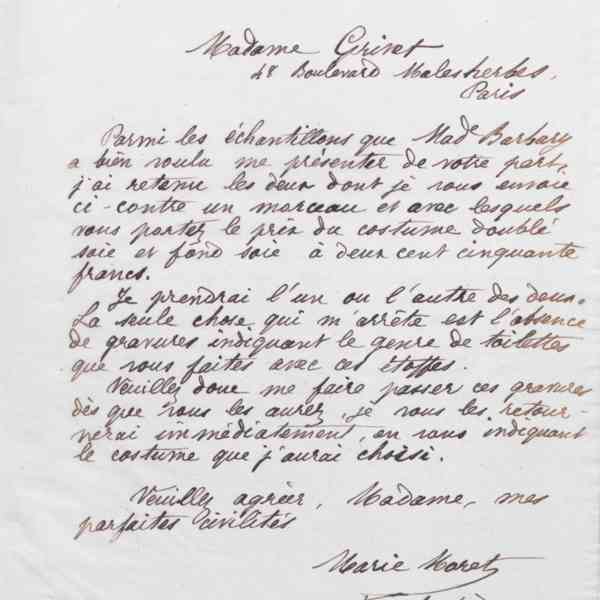 Madame Grivet
48 Boulevard Malesherbes,
Paris
Parmi les échantillons que Made Barbary
a bien voulu me présenter de votre part,
j'ai retenu les deux dont je vous envoie
ci-contre un morceau et avec lesquels
vous portez le prix du costume doublé
soie et fond soie à deux cent cinquante
francs.
Je prendrai l'un ou l'autre des deux.
La seule chose qui m'arrête est l'absence
de gravures indiquant le genre de toilettes
que vous faites avec ces étoffes.
Veuillez donc me faire passer ces gravures
dès que vous les aurez, je vous les retour-
nerai immédiatement, en vous indiquant
le costume que j'aurai choisi.
Veuillez agréer, Madame, mes
parfaites civilités
Marie Moret